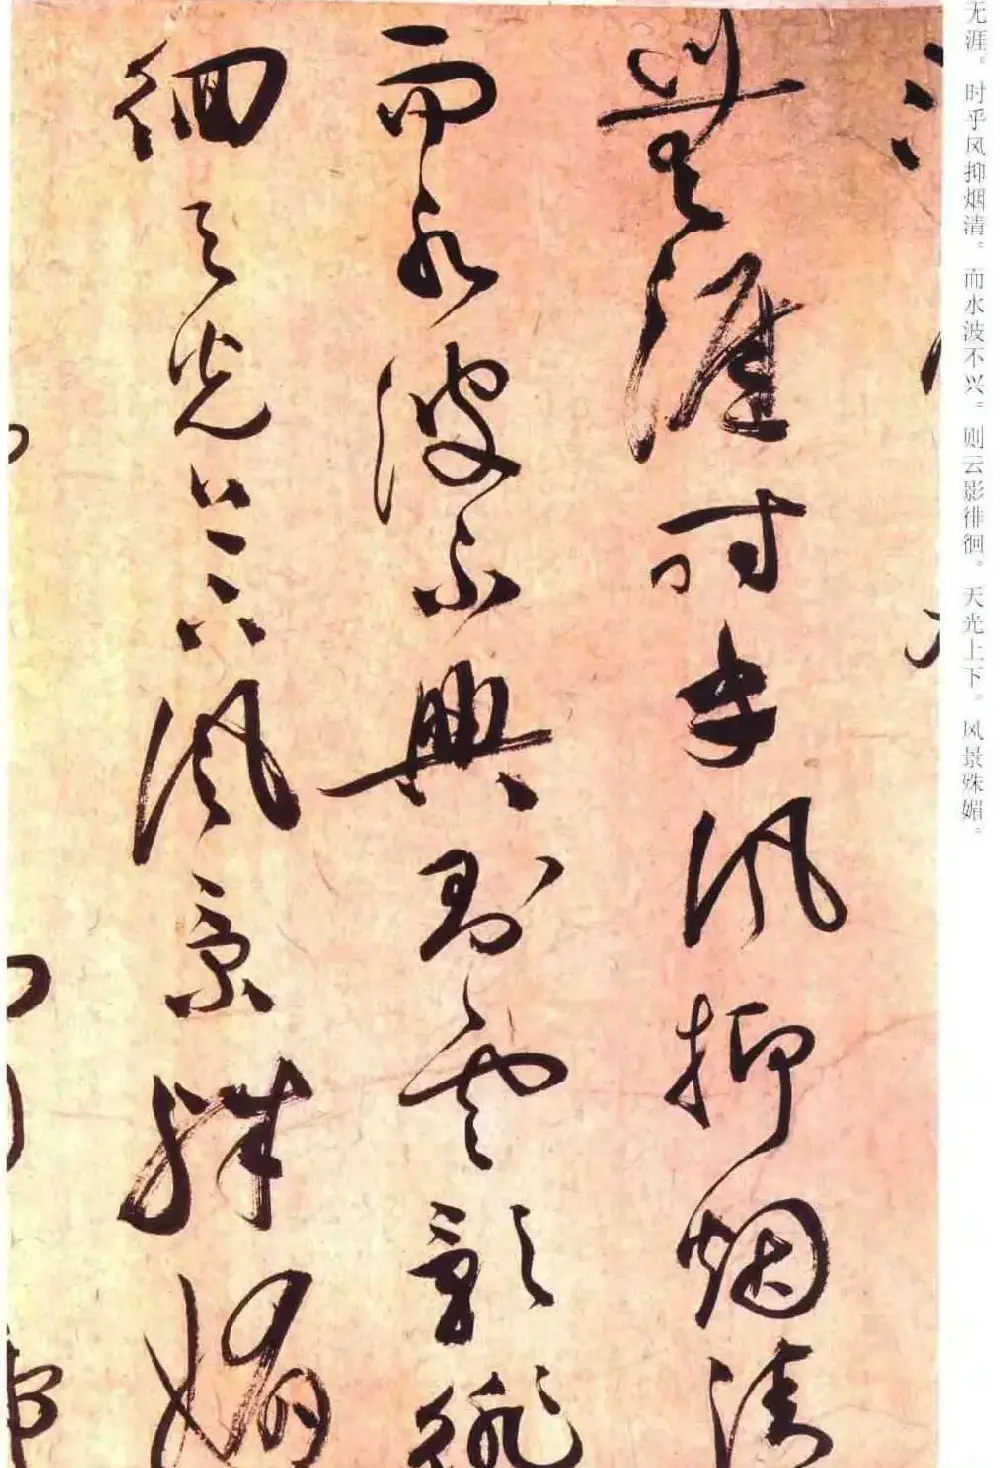 無涯时乎风抑烟清
而水波不興則雲影徘
徊天光上下風景殊媚
无涯。时乎风抑烟清。而水波不兴。则云影徘徊。天光上下。风景殊媚。